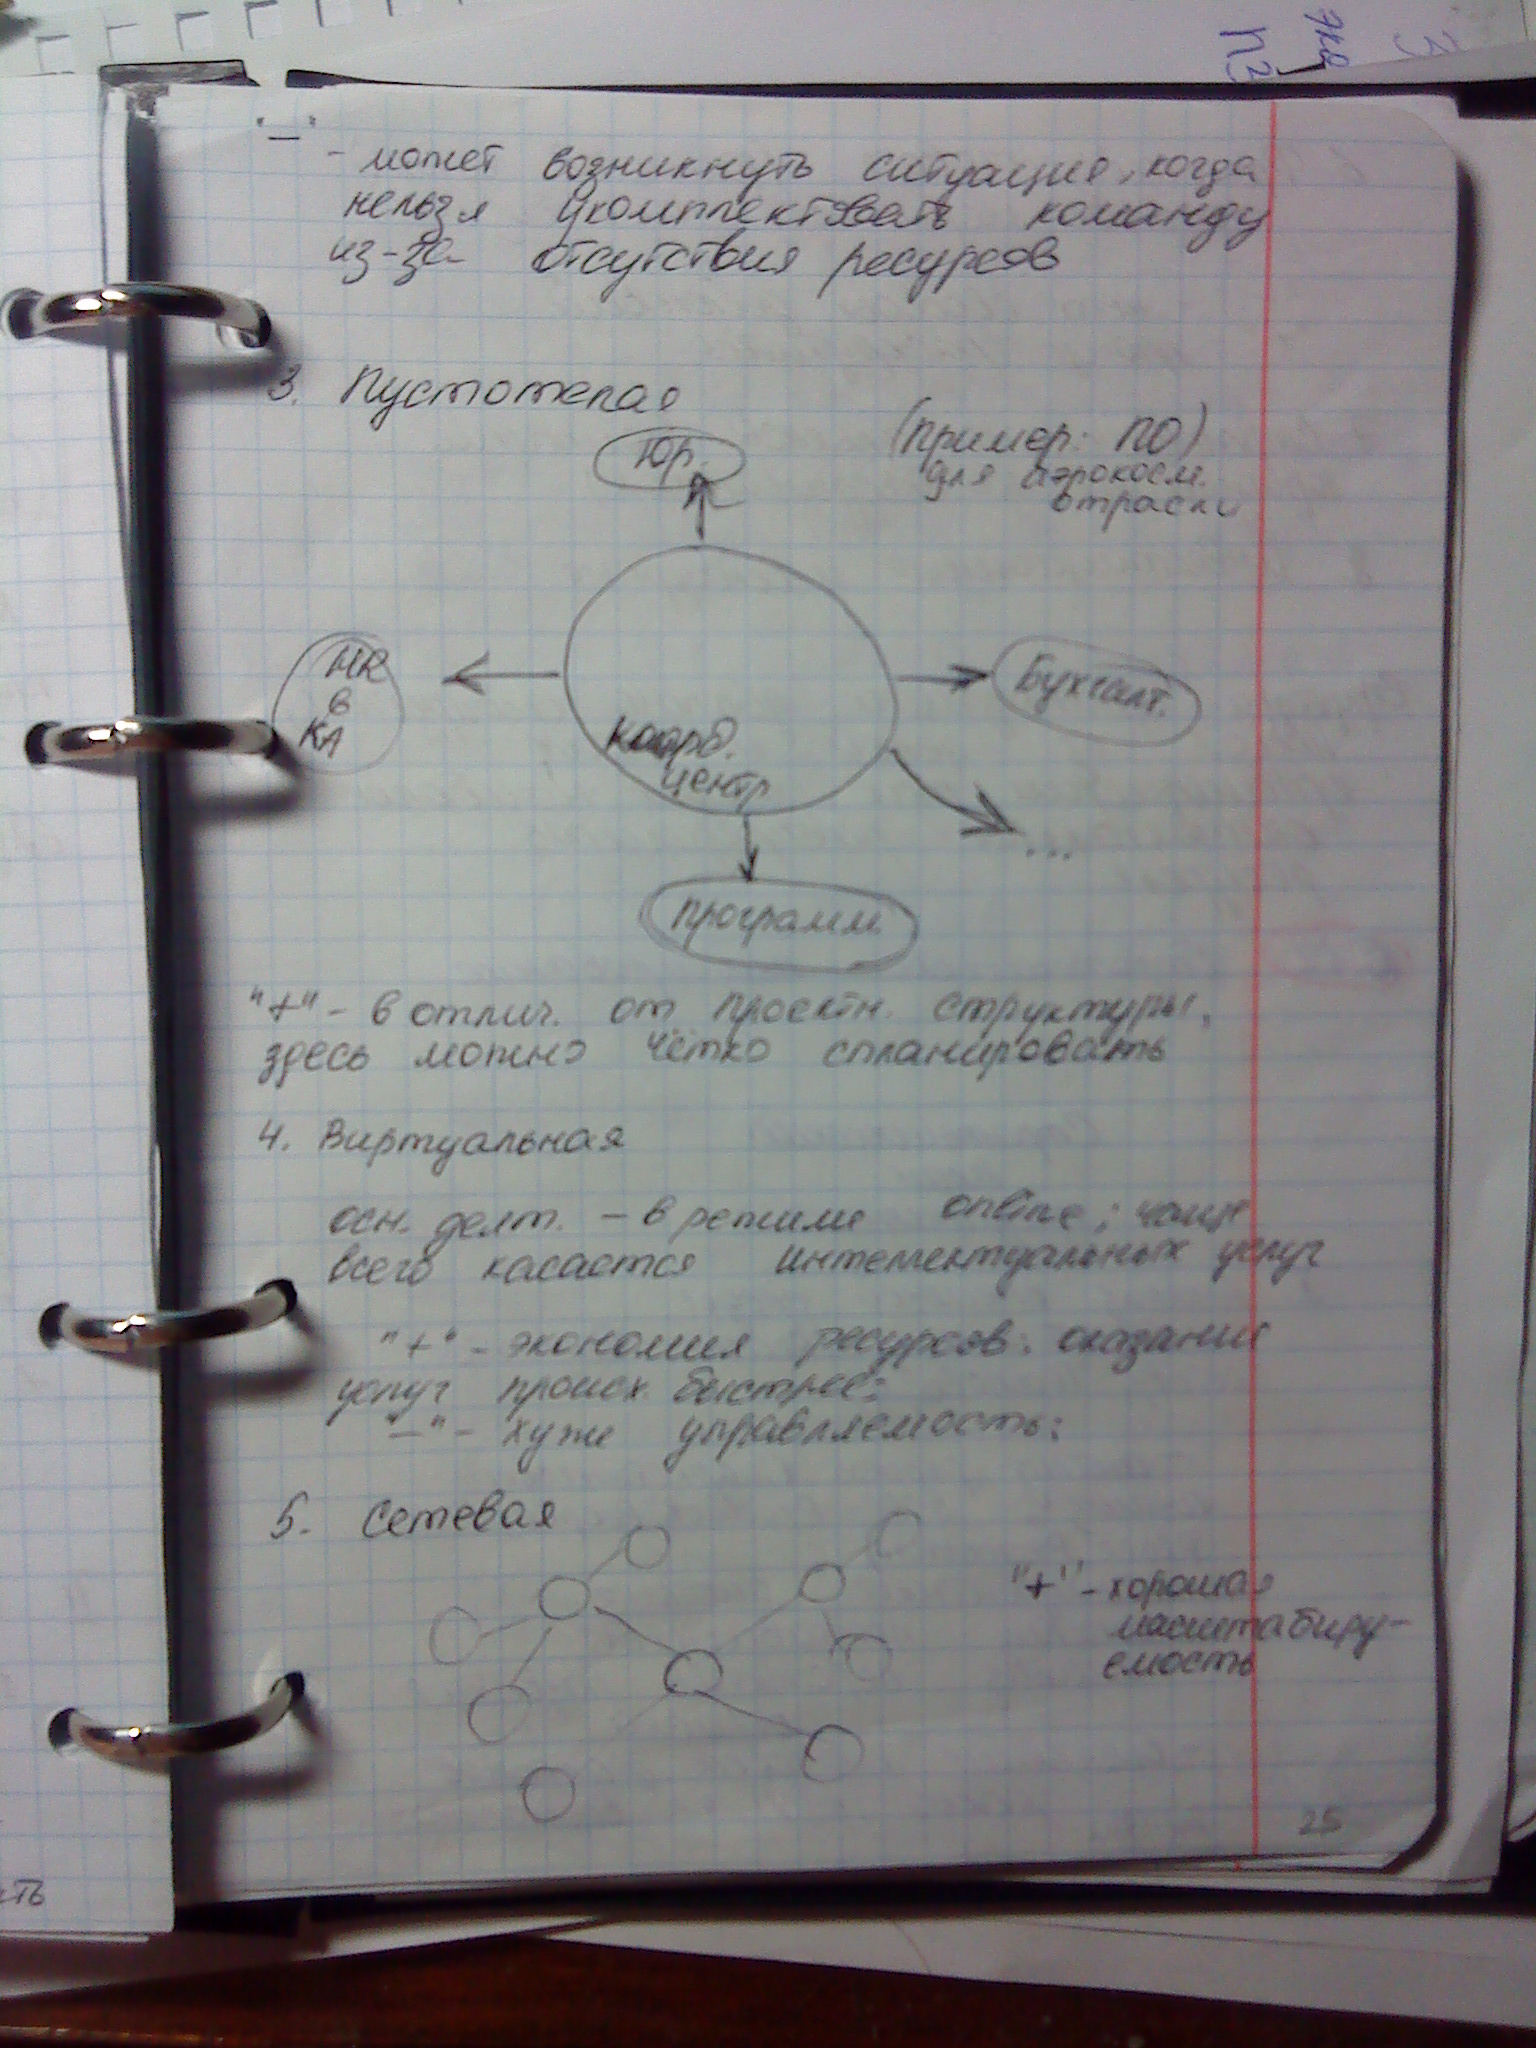 "—"
- может возникнуть ситуация, когда
нельзя укомплектовать команду
из-за отсутствия ресурсов
3. Пустотелая
(пример: ПО)
для аэрокосм.
отрасли
Юр.
HR
в
КА
Коорд.
центр
Бухгалт.
...
программ.
"+" - в отлич. от проектн. структуры,
здесь можно чётко спланировать
4. Виртуальная
осн. деят. - в режиме online; чаще
всего касается интеллектуальных услуг
"+" - экономия ресурсов. оказание
услуг происх. быстрее;
"—" - хуже управляемость;
5. Сетевая
"+" - хорошая
масштабиру-
емость
25